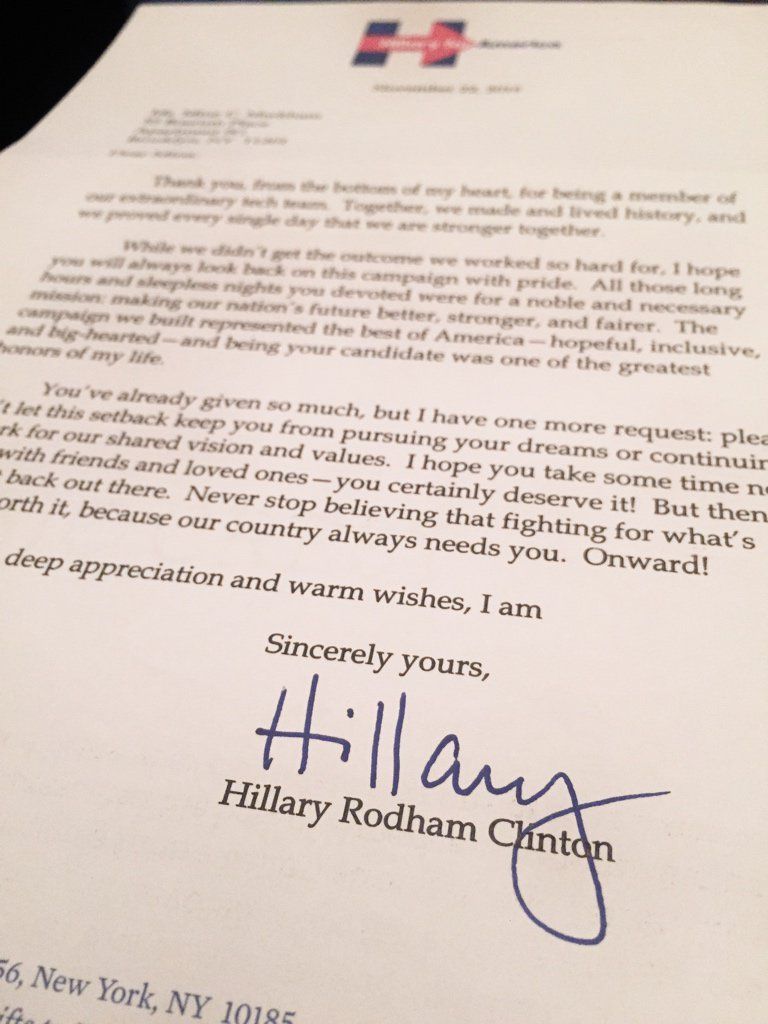 Hillary for America
Thank you, from the bottom of my heart, for being a member of
our extraordinary tech team. Together, we made and lived history, and
we proved every single day that we are stronger together.
While we didn't get the outcome we worked so hard for, I hope
you will always look back on this campaign with pride. All those long
hours and sleepless nights you devoted were for a noble and necessary
mission: making our nation's future better, stronger, and fairer. The
campaign we built represented the best of America—hopeful, inclusive,
and big-hearted—and being your candidate was one of the greatest
honors of my life.
You've already given so much, but I have one more request: plea
't let this setback keep you from pursuing your dreams or continuin
rk for our shared vision and values. I hope you take some time n
with friends and loved ones—you certainly deserve it! But then
back out there. Never stop believing that fighting for what's
orth it, because our country always needs you. Onward!
deep appreciation and warm wishes, I am
Sincerely yours,
Hillary
Hillary Rodham Clinton
56, New York, NY 10185